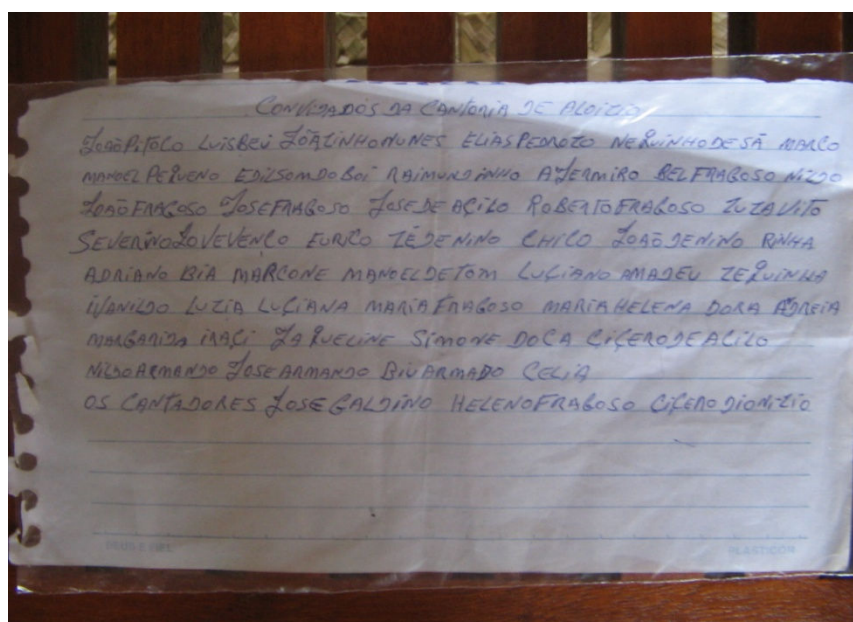 CONVIDADOS DA CANTORIA DE ALOIZIO
JOÃO PITOCO LUIS BEU JOÃZINHO NUNES ELIAS PEDROZO NEQUINHO DE SÁ MARCO
MANOEL PEQUENO EDILSOM DO BOI RAIMUNDINHO ADERMIRO BEL FRAGOSO NILDO
JOÃO FRAGOSO JOSE FRAGOSO JOSE DE AÇILO ROBERTO FRAGOSO ZUZA VITO
SEVERINO EURICO ZÉ DE NINO CHICO JOÃO DE NINO RINHA
ADRIANO BIA MARCONE MANOEL DE TOM LUÇIANO AMADEU ZEQUINHA
IVANILDO LUZIA LUÇIANA MARIA FRAGOSO MARIA HELENA DORA ADREIA
MARGARIDA IRAÇI JAQUELINE SIMONE DOCA CIÇERO DE ACILO
NILDO ARMANDO JOSE ARMANDO BIU ARMADO CELIA
OS CANTADORES JOSE GALDINO HELENO FRAGOSO CIÇERO DIONIZIO
PLASTICOR